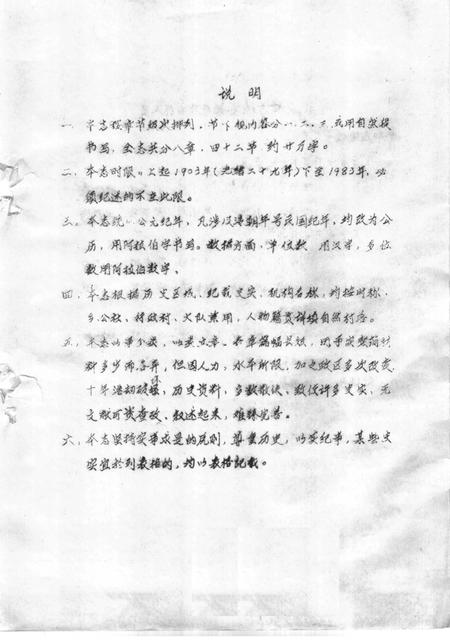 说明
一、本志按章节级次排列，节下视内容分一、二、三，或用自然段
书写，全志共分八章，四十二节，约廿万字。
二、本志时限，上起1903年（光绪二十九年）下至1983年，必
须纪述的不在此限。
三、本志统一公元纪年，凡涉及清朝年号民国纪年，均改为公
历，用阿拉伯字书写。数据方面，单位数用汉字，多位
数用阿拉伯数字、
四、本志根据历史区域，纪载史实，机构名称，均按时称，
乡公社、村政村、大队兼用，人物籍贯详填自然村名。
五、本志以事分类，以类立章，各章篇幅长短，因事实繁简材
料多少而各异，但因人力，水平所限，加之政区多次改变
十年浩劫破坏，历史资料，多数散失，致使许多史实，无
文献可找查改、叙述起来，难臻完善。
六、本志坚持实事求是的原则，尊重历史，以实纪事，某些史
实宜于列表格的，均以表格记载。